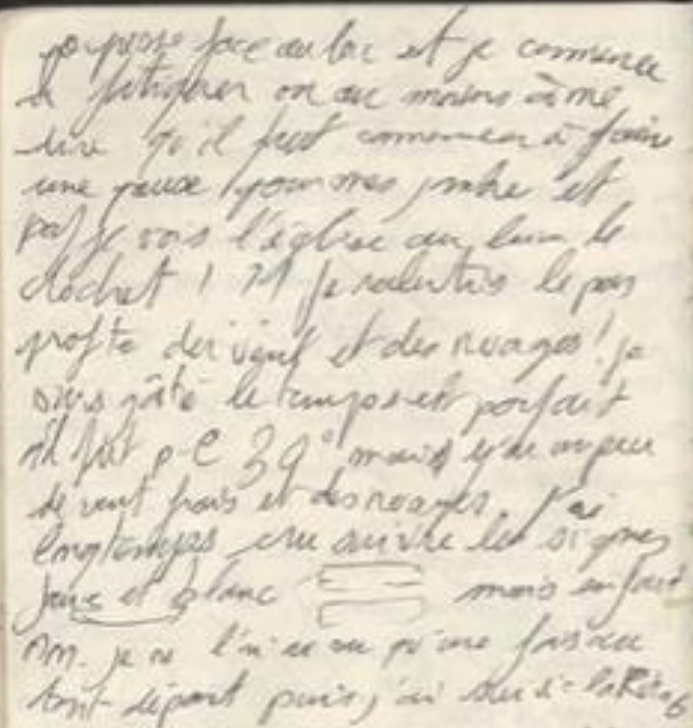 je passe face au lac et je commence
à fatiguer ou au moins à me
dire qu'il faut commencer à faire
une pause pour mes jambe et
paf je vois l'église au loin le
clochet ! Je ralentis le pas
profite du vent et des nuages ! je
suis gâté le temps est parfait
il fait p-e 30° mais y'a un peu
de vent frais et des nuages. J'ai
longtemps cru suivre les signes
jaune et blanc mais en fait
nn. je ne l'ai vu qu'une fois au
tout départ puis j'ai suivi